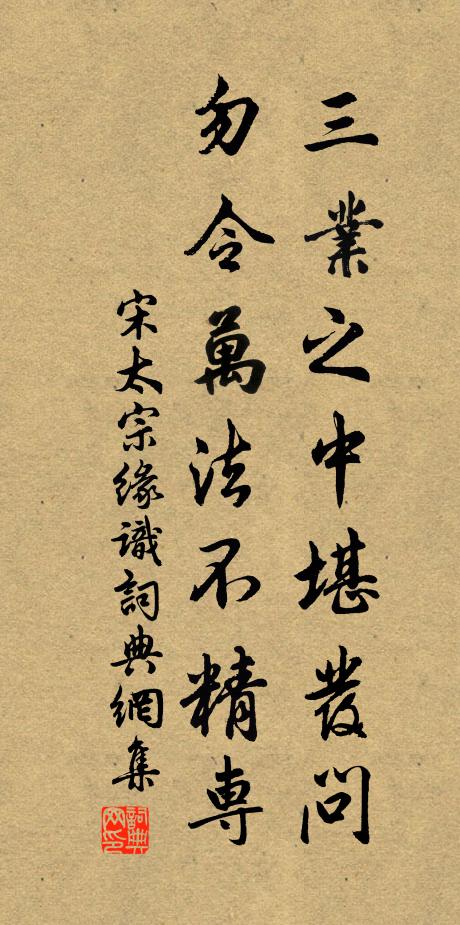 三業之中堪發問
勿令萬法不精専
宋太宗緣識詞典網集
詞典网印